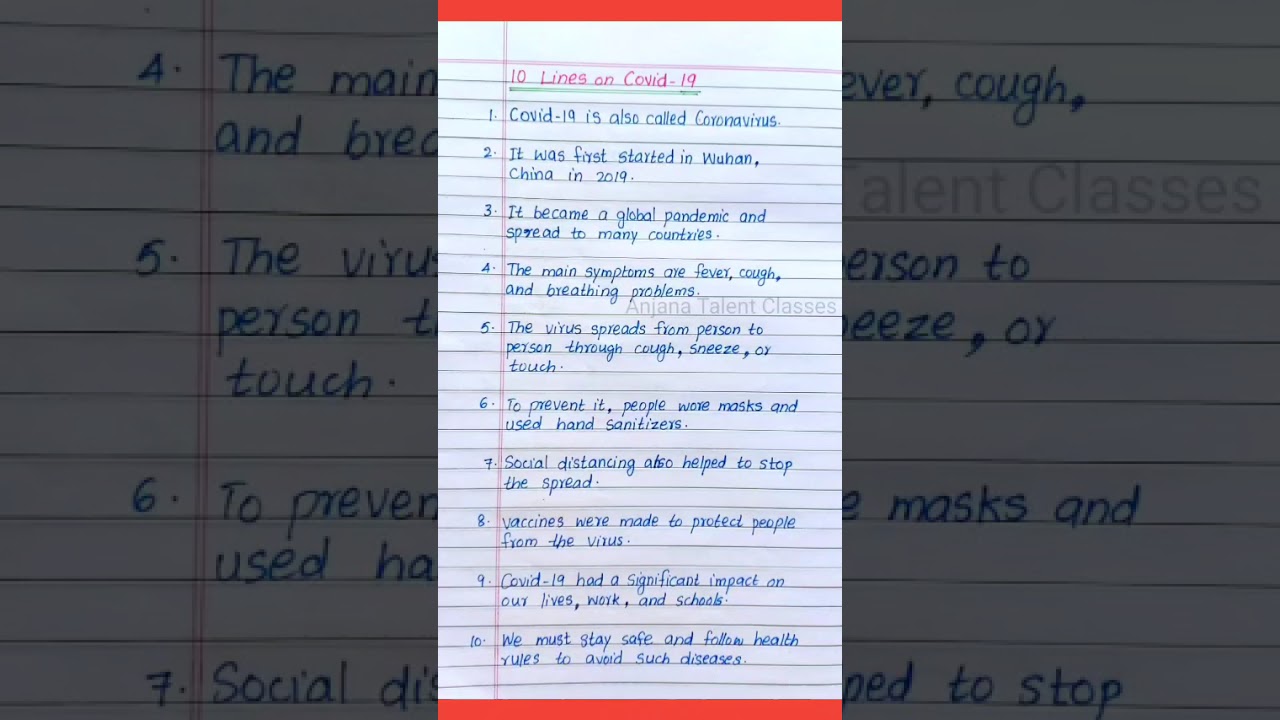 10 Lines on Covid-19
1. Covid-19 is also called Coronavirus.
2. It was first started in Wuhan,
China in 2019.
3. It became a global pandemic and
spread to many countries.
4. The main symptoms are fever, cough,
and breathing problems.
Anjana Talent Classes
5. The virus spreads from person to
person through cough, sneeze, or
touch.
6. To prevent it, people wore masks and
used hand sanitizers.
7. Social distancing also helped to stop
the spread.
8. Vaccines were made to protect people
from the virus.
9. Covid-19 had a significant impact on
our lives, work, and schools.
10. We must stay safe and follow health
rules to avoid such diseases.